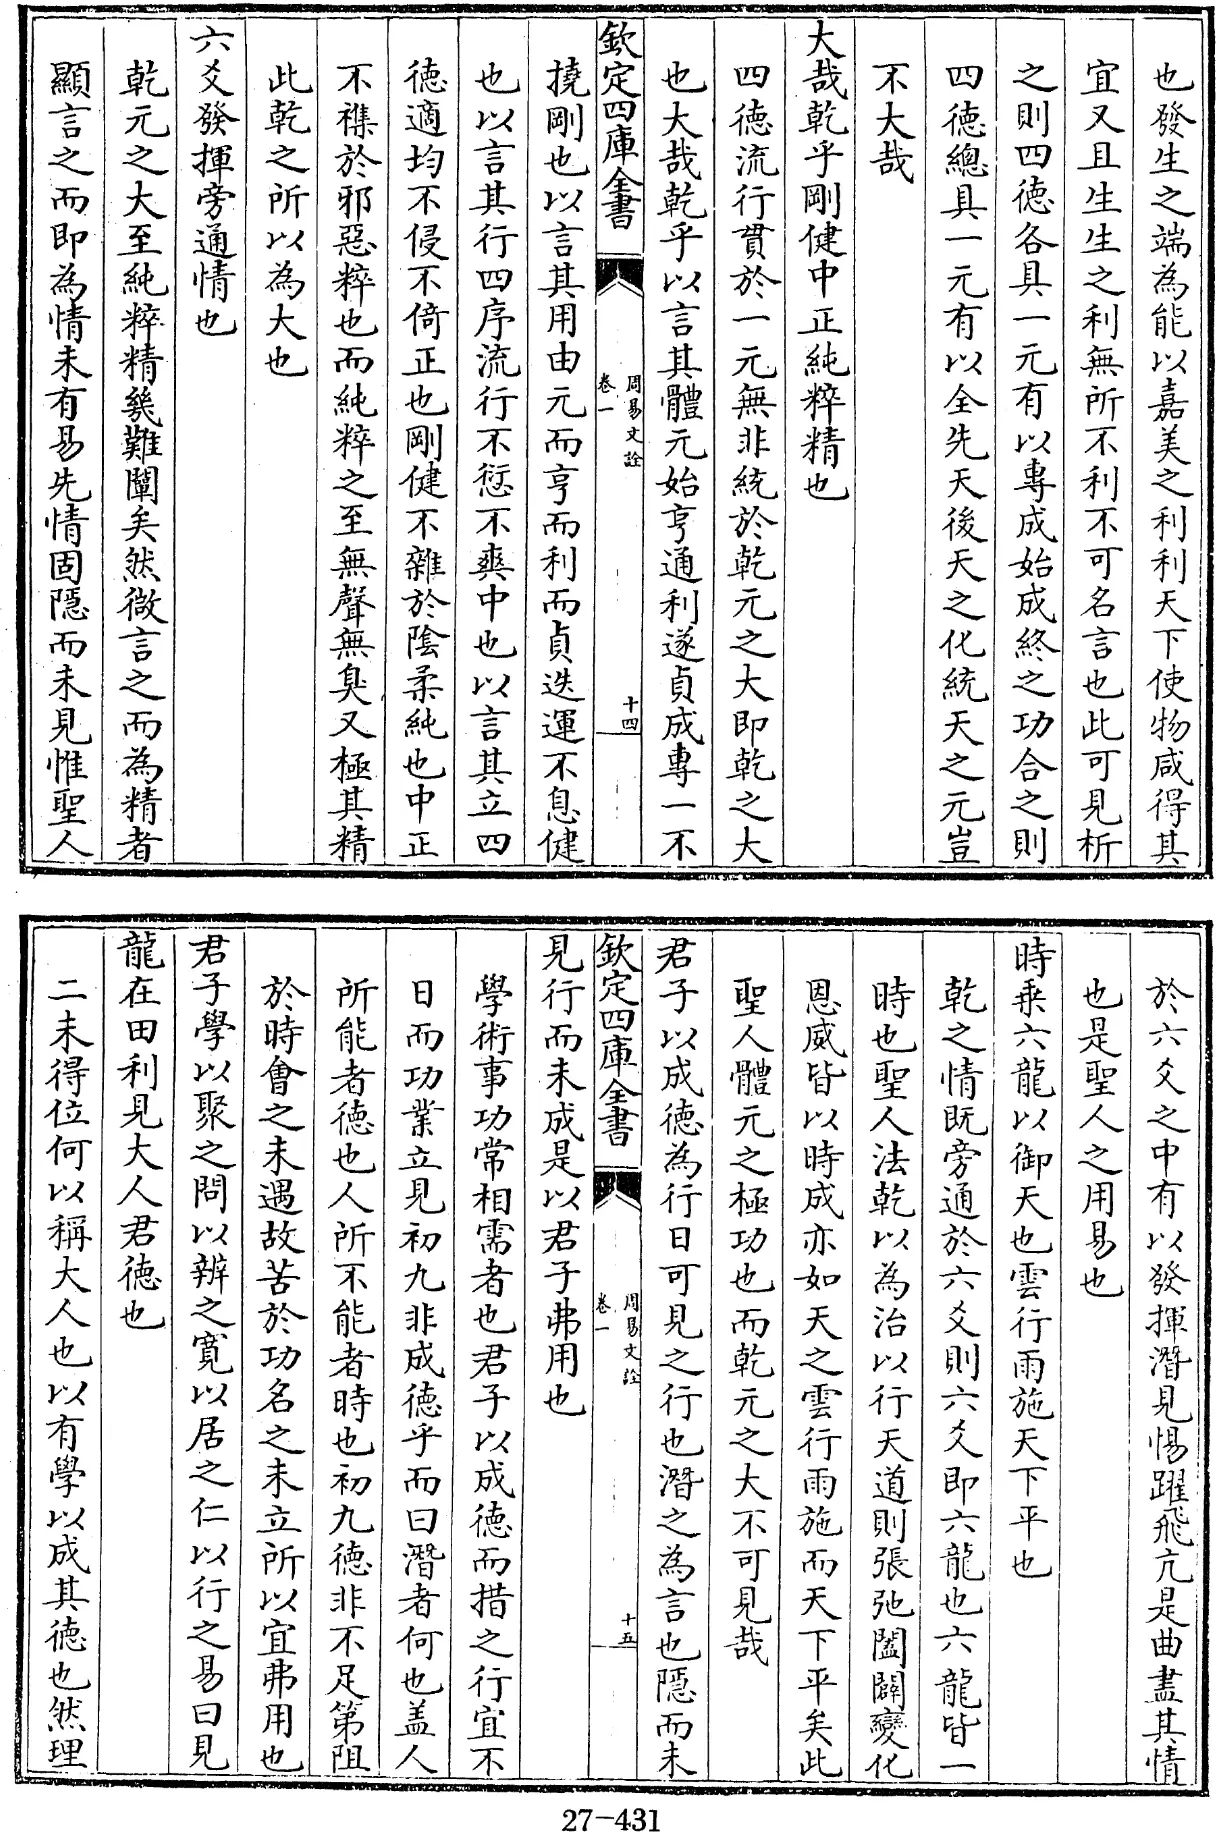 也發生之端為能以嘉美之利利天下使物咸得其
宜又且生生之利無所不利不可名言也此可見析
之則四徳各具一元有以專成始成終之功合之則
四徳總具一元有以全先天後天之化統天之元豈
不大哉
大哉乾乎剛健中正純粹精也
四徳流行貫於一元無非統於乾元之大即乾之大
也大哉乾乎以言其體元始亨通利遂貞成專一不
欽定四庫全書
周易文詮
卷一
十四
撓剛也以言其用由元而亨而利而貞迭運不息健
也以言其行四序流行不愆不爽中也以言其立四
徳適均不侵不倚正也剛健不雜於陰柔純也中正
不襍於邪惡粹也而純粹之至無聲無臭又極其精
此乾之所以為大也
六爻發揮旁通情也
乾元之大至純粹精㡬難闡矣然微言之而為精者
顯言之而即為情未有易先情固隱而未見惟聖人
於六爻之中有以發揮潛見惕躍飛亢是曲盡其情
也是聖人之用易也
時乗六龍以御天也雲行雨施天下平也
乾之情既旁通於六爻則六爻即六龍也六龍皆一
時也聖人法乾以為治以行天道則張弛闔闢變化
恩威皆以時成亦如天之雲行雨施而天下平矣此
聖人體元之極功也而乾元之大不可見哉
君子以成徳為行日可見之行也潛之為言也隱而未
欽定四庫全書
周易文詮
卷一
十五
見行而未成是以君子弗用也
學術事功常相需者也君子以成徳而措之行宜不
日而功業立見初九非成徳乎而曰潛者何也盖人
所能者徳也人所不能者時也初九徳非不足第阻
於時會之未遇故苦於功名之未立所以宜弗用也
君子學以聚之問以辨之寛以居之仁以行之易曰見
龍在田利見大人君徳也
二未得位何以稱大人也以有學以成其徳也然理
27-431